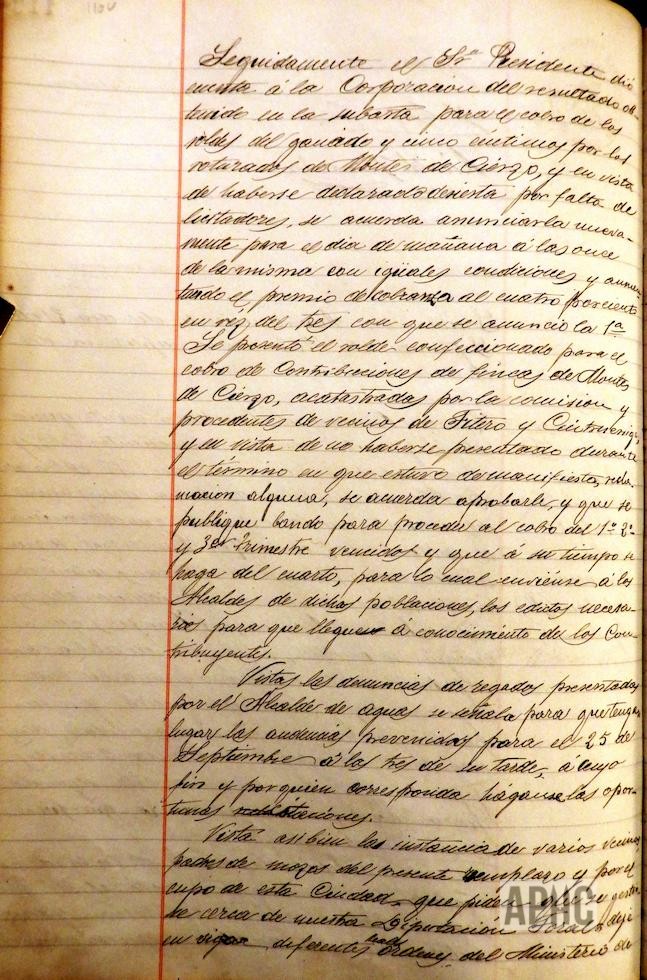 Seguidamente el Sr. Presidente dió
cuenta á la Corporacion del resultado ob-
tenido en la subasta para el cobro de los
roldes del ganado y cinco céntimos por los
roturados de Montes de Cierzo, y en vista
de haberse declarado desierta por falta de
licitadores, se acuerda anunciarla nueva-
mente para el dia de mañana á las once
de la misma con iguales condiciones y aumen-
tando el premio de cobranza al cuatro por ciento
en vez del tres con que se anuncio la 1ª
Se presentó el rolde confeccionado para el
cobro de Contribuciones de fincas de Montes
de Cierzo, acatastradas por la comision y
procedentes de vecinos de Fitero y Cintruenigo,
y en vista de no haberse presentado durante
el término en que estuvo de manifiesto, recla-
macion alguna, se acuerda aprobarle, y que se
publique bando para proceder al cobro del 1º 2º
y 3er trimestre vencidos y que á su tiempo se
haga del cuarto, para lo cual enviénse á los
Alcaldes de dichas poblaciones, los edictos necesa-
rios para que lleguen á conocimiento de los Con-
tribuyentes.
Vistas las denuncias de regados presentadas
por el Alcalde de aguas se señala para que tengan
lugar las audiencias prevenidas para el 25 de
Septiembre á las tres de su tarde, á cuyo
fin y por quien corresponda háganse las opor-
tunas
Vista asi bien la instancia de varios vecinos
padres de mozos del presente reemplazo y por el
cupo de esta Ciudad, que piden que se gestio-
ne cerca de nuestra Diputación Foral deje
en vigor diferentes Reales órdenes del Ministerio de
APHC